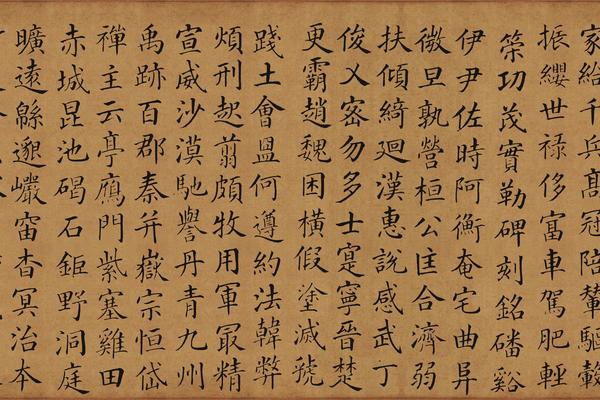 家給千兵髙冠陪輦驅轂
振纓世祿侈富車駕肥輕
筞功茂實勒碑刻銘磻谿
伊尹佐時阿衡奄宅曲阜
微旦孰營桓公匡合濟弱
扶傾綺廻漢惠說感武丁
俊乂密勿多士寔寧晉楚
更霸趙魏困橫假塗滅虢
踐土會盟何遵約法韓弊
煩刑起翦頗牧用軍冣精
宣威沙漠馳譽丹青九州
禹跡百郡秦并嶽宗恒岱
禪主云亭鴈門紫塞雞田
赤城昆池碣石鉅野洞庭
曠遠緜邈巖峀杳冥治本